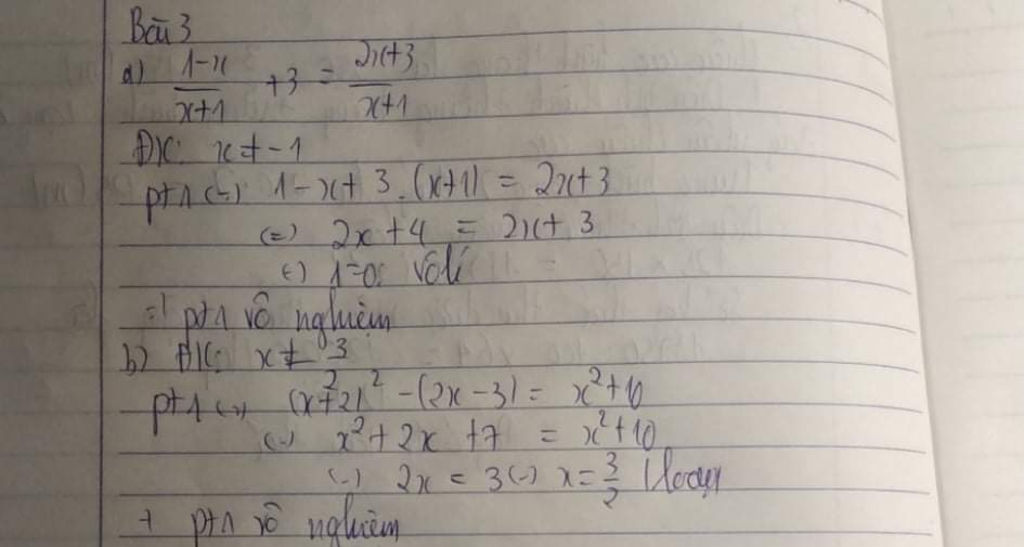 Bài 3
a) \frac{1-x}{x+1} + 3 = \frac{2x+3}{x+1}
ĐK: x ≠ -1
pt1 (=) 1-x+3.(x+1) = 2x+3
(=) 2x+4 = 2x+3
(=) 1=0: vô lí
=) pt1 vô nghiệm
b) ĐK: x ≠ \frac{3}{2}
pt1 (=) (x+2)^2 - (2x-3) = x^2+10
(=) x^2+2x+7 = x^2+10
(=) 2x = 3 (=) x = \frac{3}{2} (loại)
+ pt1 vô nghiệm